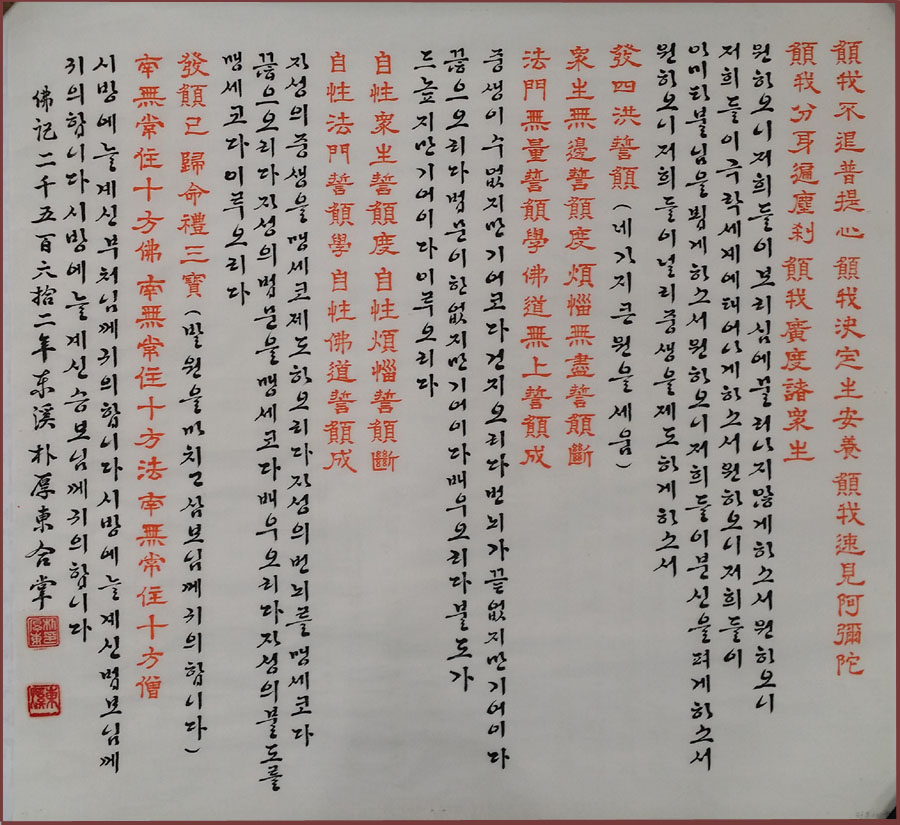 願我不退普提心 願我決定生安養 願我速見阿彌陀
願我分身遍塵刹 願我廣度諸衆生
원하오니저희들이보리심에물러나지않게하소서원하오니
저희들이극락세계에태어나게하소서원하오니저희들이
아미타불님을뵙게하소서원하오니저희들이분신을펴게하소서
원하오니저희들이널리중생을제도하게하소서
發四洪誓願(네가지큰원을세움)
衆生無邊誓願度 煩惱無盡誓願斷
法門無量誓願學佛道無上誓願成
중생이수없지만기어코다건지오리다번뇌가끝없지만기어이다
끊으오리다법문이한없지만기어이다배우오리다불도가
드높지만기어이다이루오리다
自性衆生誓願度 自性煩惱誓願斷
自性法門誓願學 自性佛道誓願成
자성의중생을맹세코제도하오리다자성의번뇌를맹세코다
끊으오리다자성의법문을맹세코다배우오리다자성의불도를
맹세코다이루오리다
發願已 歸命禮三寶(발원을마치고삼보님께귀의합니다)
南無常住十方佛南無常住十方法南無常住十方僧
시방에늘계신부처님께귀의합니다시방에늘계신법보님께
귀의합니다시방에늘계신승보님께귀의합니다
佛記二千五百六拾二年東溪朴厚東合掌